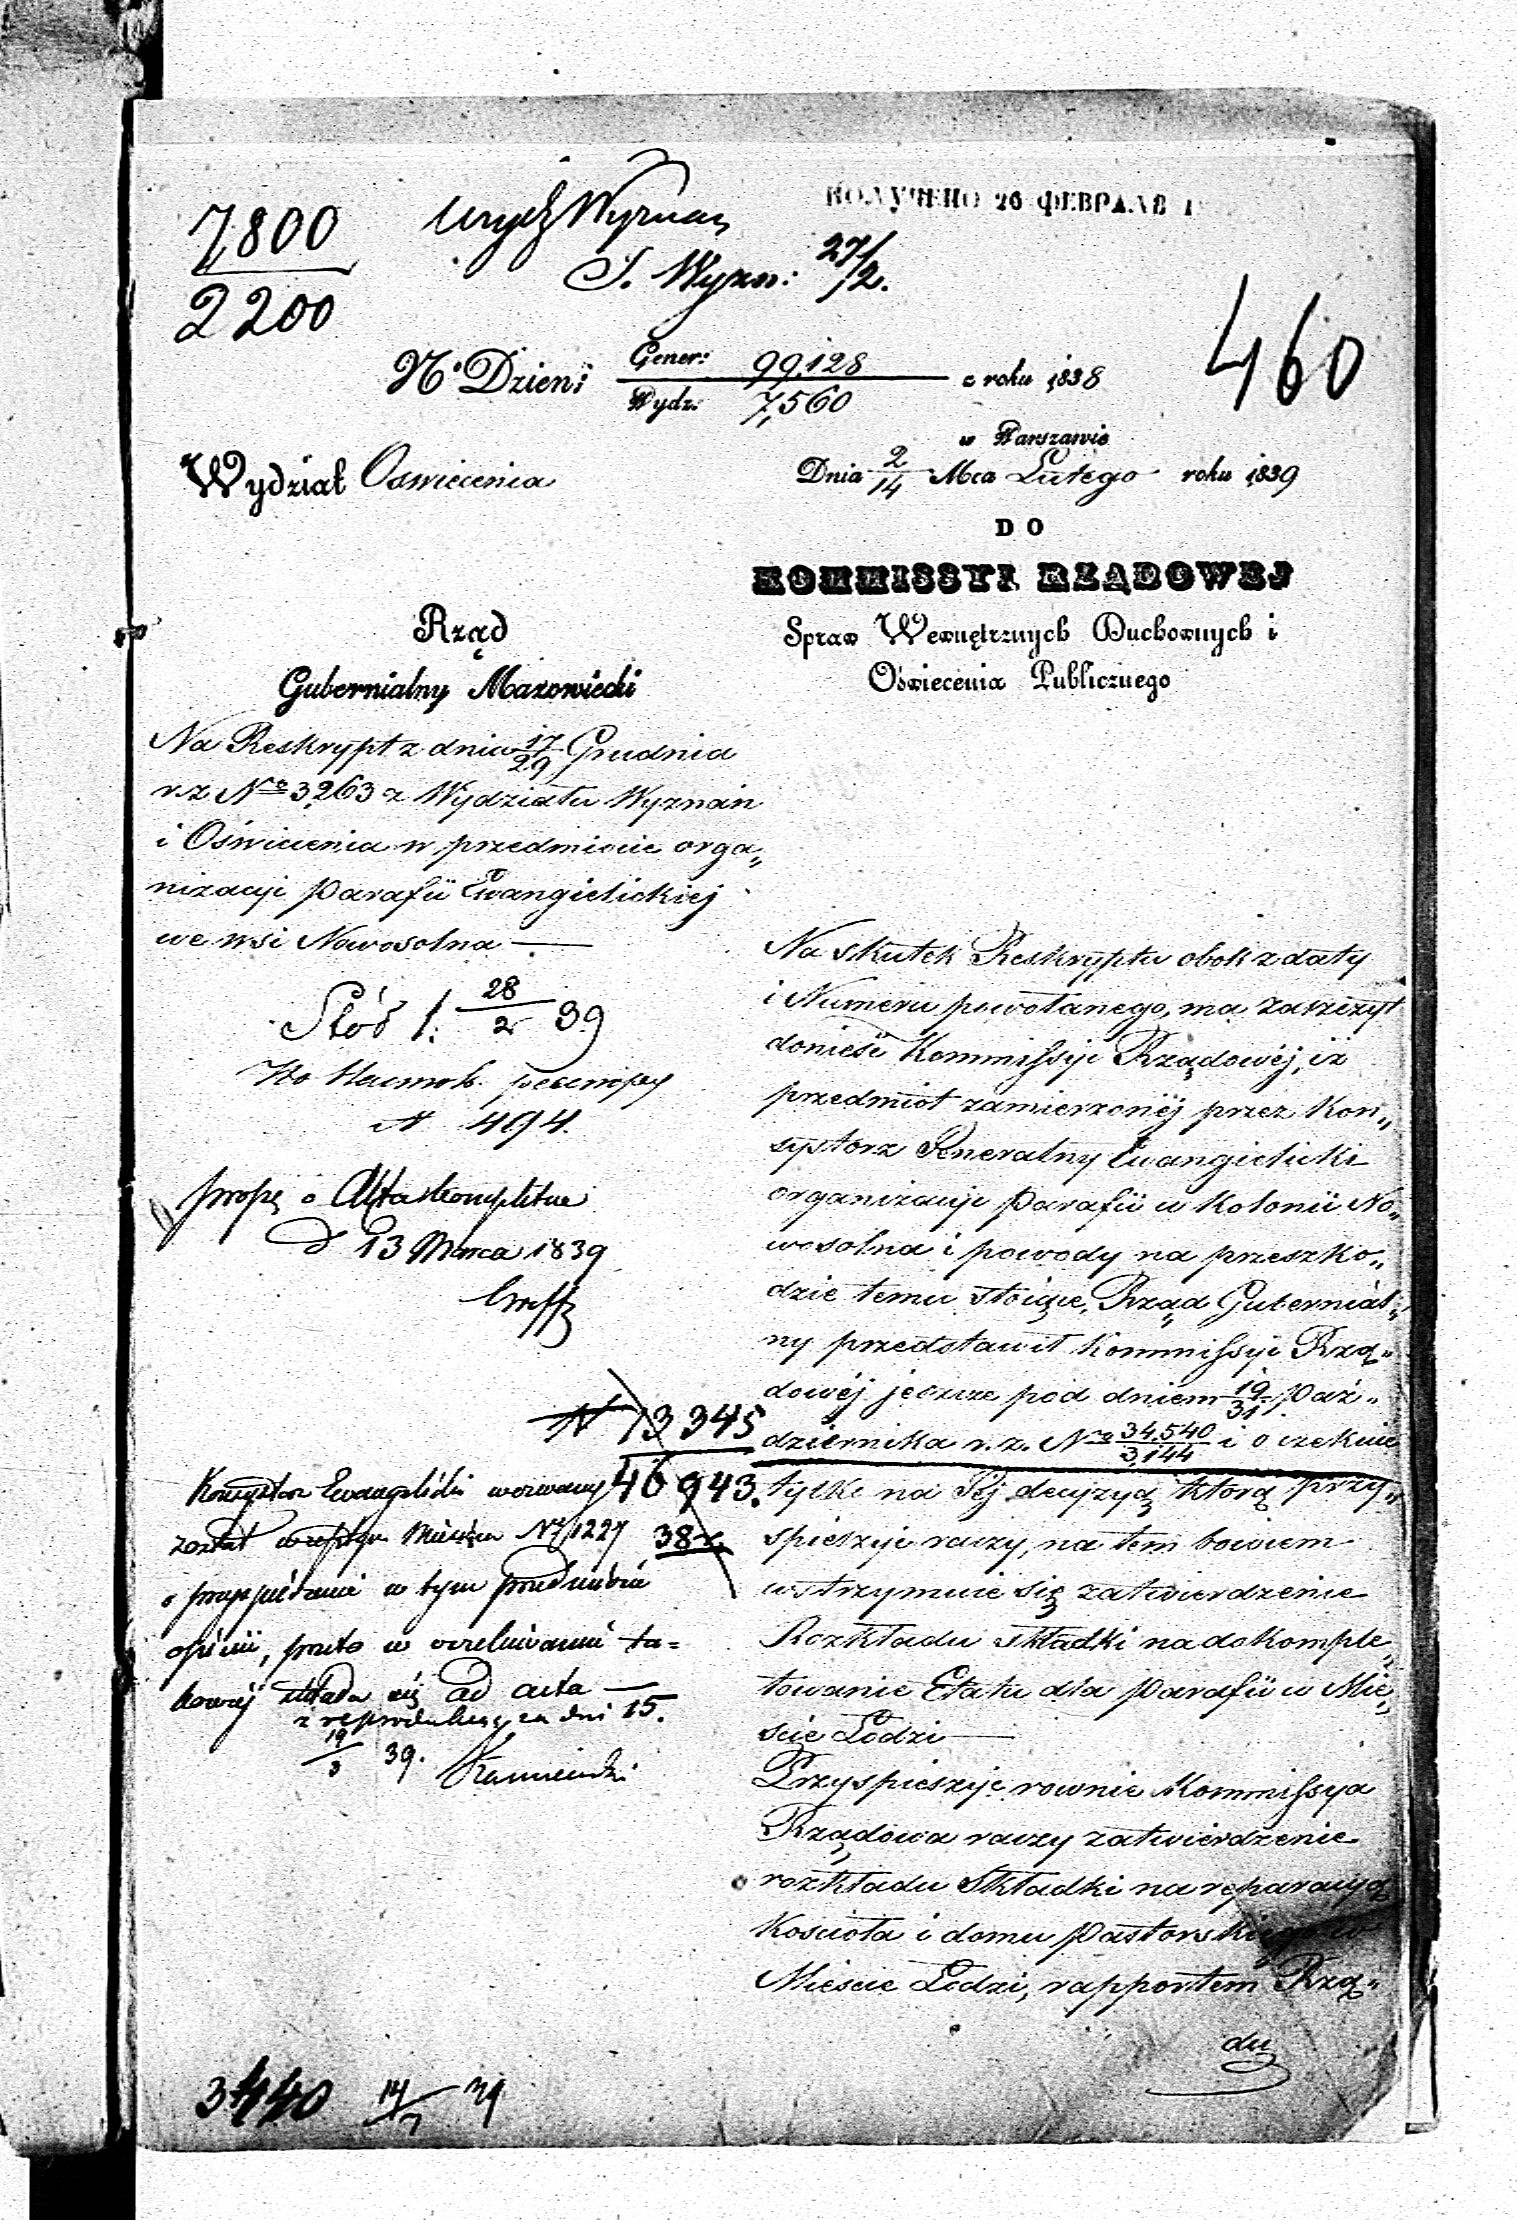 7800
2200
Wyzna
S. Wyzn: 27/2.
ПОЛУЧЕНО 26 ФЕВРАЛЯ 1
460
No Dzien: Gener: 99,128 z roku 1838
Wydz: 7,560
w Warszawie
Wydział Oswiecenia
Dnia 2/14 Mca Lutego roku 1839
DO
KOMMISSYI RZĄDOWEJ
Spraw Wewnętrznych Duchownych i
Oświecenia Publicznego
Rząd
Gubernialny Mazowiecki
Na Reskrypt z dnia 17/29 Grudnia
r. z No 3263 z Wydziału Wyznań
i Oświecenia w przedmiocie orga„
nizacyi Parafii Ewangielickiej
we wsi Nowosolna —
28/2 39
No 494.
proszę o Akta kompletne
d 13 Marca 1839
N 13345
46943.
38
Konsystorz Ewangelicki wezwany
został reskryptem No 1227
o przyspieszenie w tym przedmiocie
opinii, przeto w oczekiwaniu ta=
kowej składa się ad acta —
i reprodukuje za dni 15.
19/3 39.
3440 14/7 39
Na skutek Reskryptu obok z daty
i Numeru powołanego, ma zaszczyt
donieść Kommissyi Rządowéj, iż
przedmiot zamierzonéj przez Kon„
systorz Generalny Ewangielicki
organizacyi Parafii w Kolonii No„
wosolna i powody na przeszko„
dzie temu stojące, Rząd Gubernial„
ny przedstawił Kommissyi Rzą„
dowéj jeszcze pod dniem 19/31 Paź„
dziernika r. z. No 34.540/3,144 i oczekuie
tylko na Jéj decyzyą którą przy„
spieszyć raczy, na tem bowiem
wstrzymuie się zatwierdzenie
Rozkładu składki na dokomple„
towanie Etatu dla Parafii w Mie„
ście Łodzi —
Przyspieszyć rownie Kommissya
Rządowa raczy zatwierdzenie
rozkładu Składki na reparacyą
Kościoła i domu Pastorskiego w
Mieście Łodzi, rapportem Rzą„
du